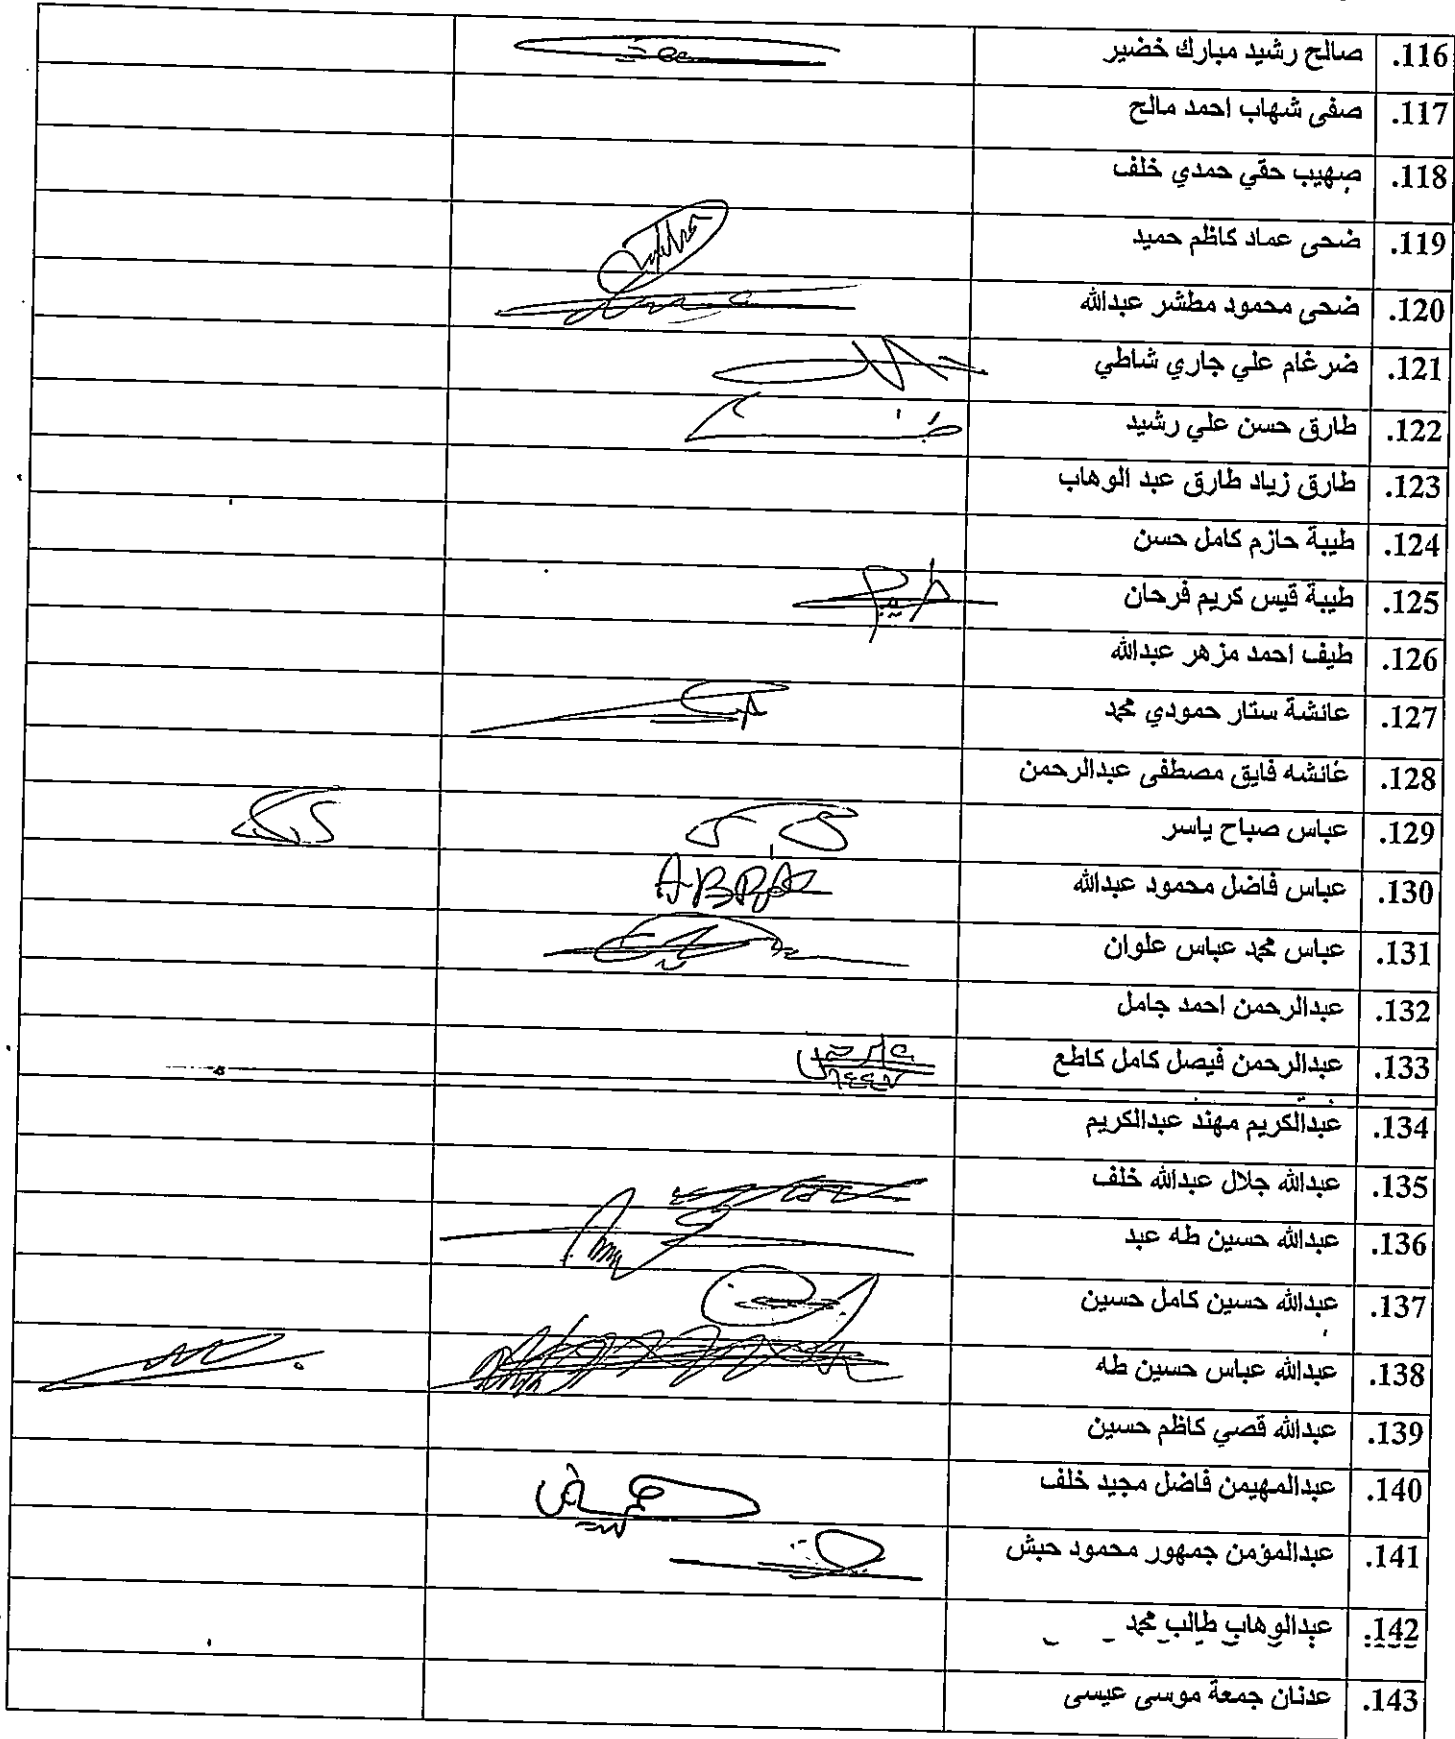 116. صالح رشيد مبارك خضير
117. صفى شهاب احمد مالح
118. صهيب حقي حمدي خلف
119. ضحى عماد كاظم حميد
120. ضحى محمود مطشر عبدالله
121. ضرغام علي جاري شاطي
122. طارق حسن علي رشيد
123. طارق زياد طارق عبد الوهاب
124. طيبة حازم كامل حسن
125. طيبة قيس كريم فرحان
126. طيف احمد مزهر عبدالله
127. عائشة ستار حمودي محمد
128. عائشه فايق مصطفى عبدالرحمن
129. عباس صباح ياسر
130. عباس فاضل محمود عبدالله
131. عباس محمد عباس علوان
132. عبدالرحمن احمد جامل
133. عبدالرحمن فيصل كامل كاطع
134. عبدالكريم مهند عبدالكريم
135. عبدالله جلال عبدالله خلف
136. عبدالله حسين طه عبد
137. عبدالله حسين كامل حسين
138. عبدالله عباس حسين طه
139. عبدالله قصي كاظم حسين
140. عبدالمهيمن فاضل مجيد خلف
141. عبدالمؤمن جمهور محمود حبش
142. عبدالوهاب طالب محمد
143. عدنان جمعة موسى عيسى